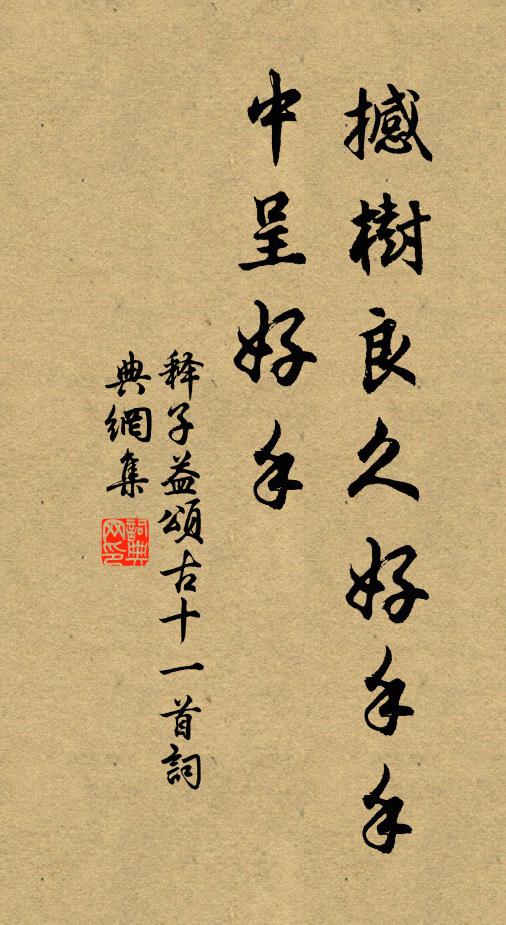 撼樹良久好手手
中呈好手
释子益頌古十一首詞
典網集
詞典網印